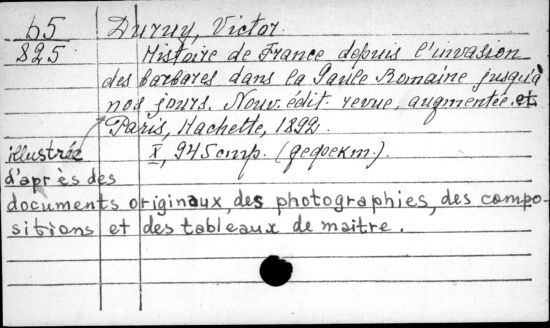 65 Duruy, Victor.
825 Histoire de France depuis l'invasion
des barbares dans la Gaule Romaine jusqu'à
nos jours. Nouv. édit. revue, augmentée et
Paris, Hachette, 1892.
illustrée X, 945 стр. (дефект.).
d'après des
documents originaux, des photographies, des compo-
sitions et des tableaux de maitre.